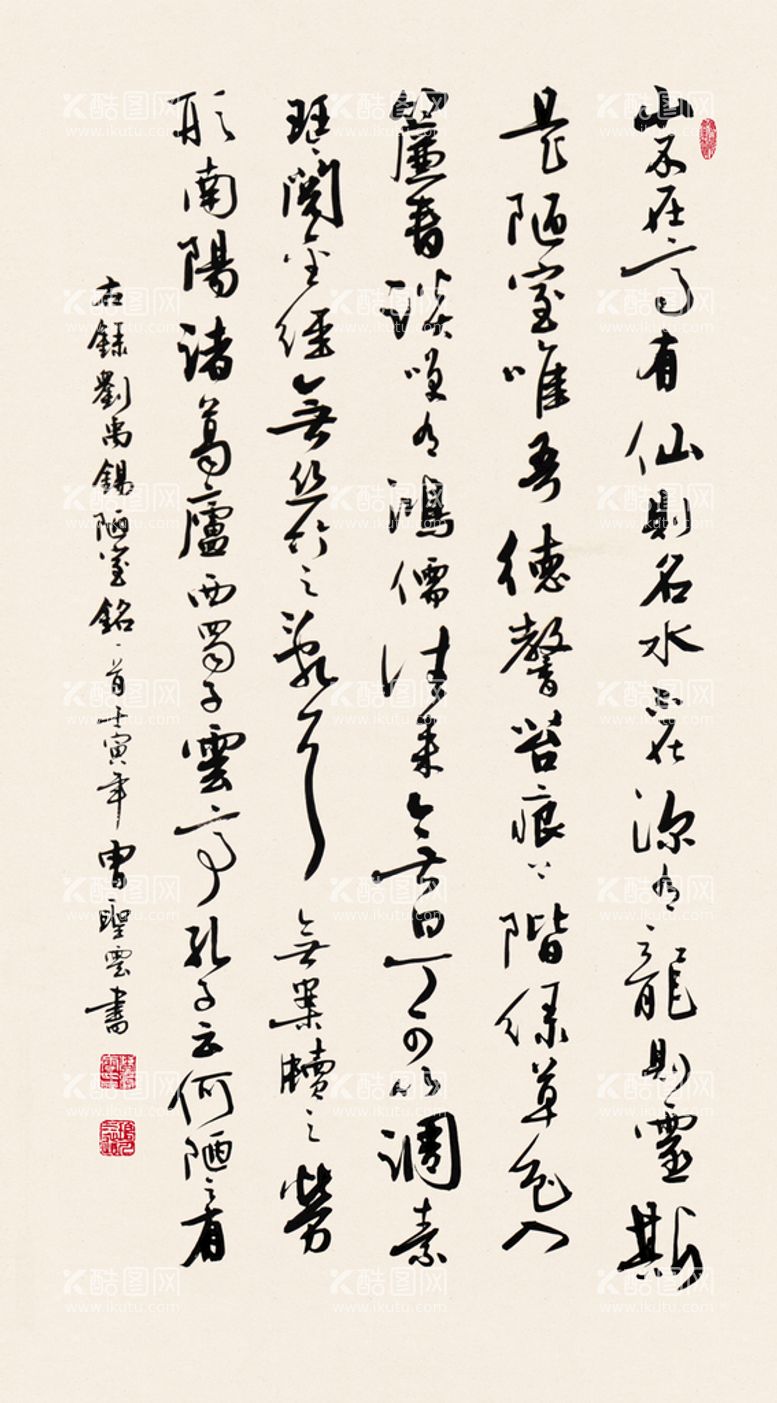 山不在高有仙則名水不在深有龍則靈斯
是陋室唯吾德馨苔痕上階綠草色入
簾青談笑有鴻儒往来無白丁可以調素
琴閱金經無丝竹之亂耳無案牘之勞
形南陽諸葛廬西蜀子雲亭孔子云何陋之有
右錄劉禹錫陋室銘一首壬寅年曹聖雲書
酷图网
www.ikutu.com